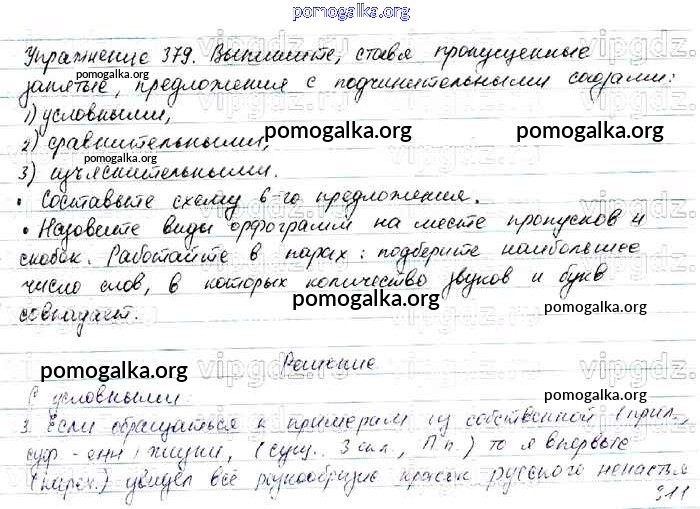 pomogalka.org
Упражнение 379. Выпишите, ставя пропущенные
запятые, предложения с подчинительными союзами:
pomogalka.org
1) условными,
2) сравнительными,
pomogalka.org pomogalka.org
3) изъяснительными.
pomogalka.org
• Составьте схему 6-го предложения.
• Назовите виды орфограмм на месте пропусков и
скобок. Работайте в парах: подберите наибольшее
число слов, в которых количество звуков и букв
совпадает.
pomogalka.org
pomogalka.org
Решение
С условными:
pomogalka.org
3. Если обращаться к примерам из собственной (прил.,
суф -енн) жизни, (сущ., 3 скл., П.п.) то я впервые
(нареч.) увидел всё разнообразие красок русского ненастья
311